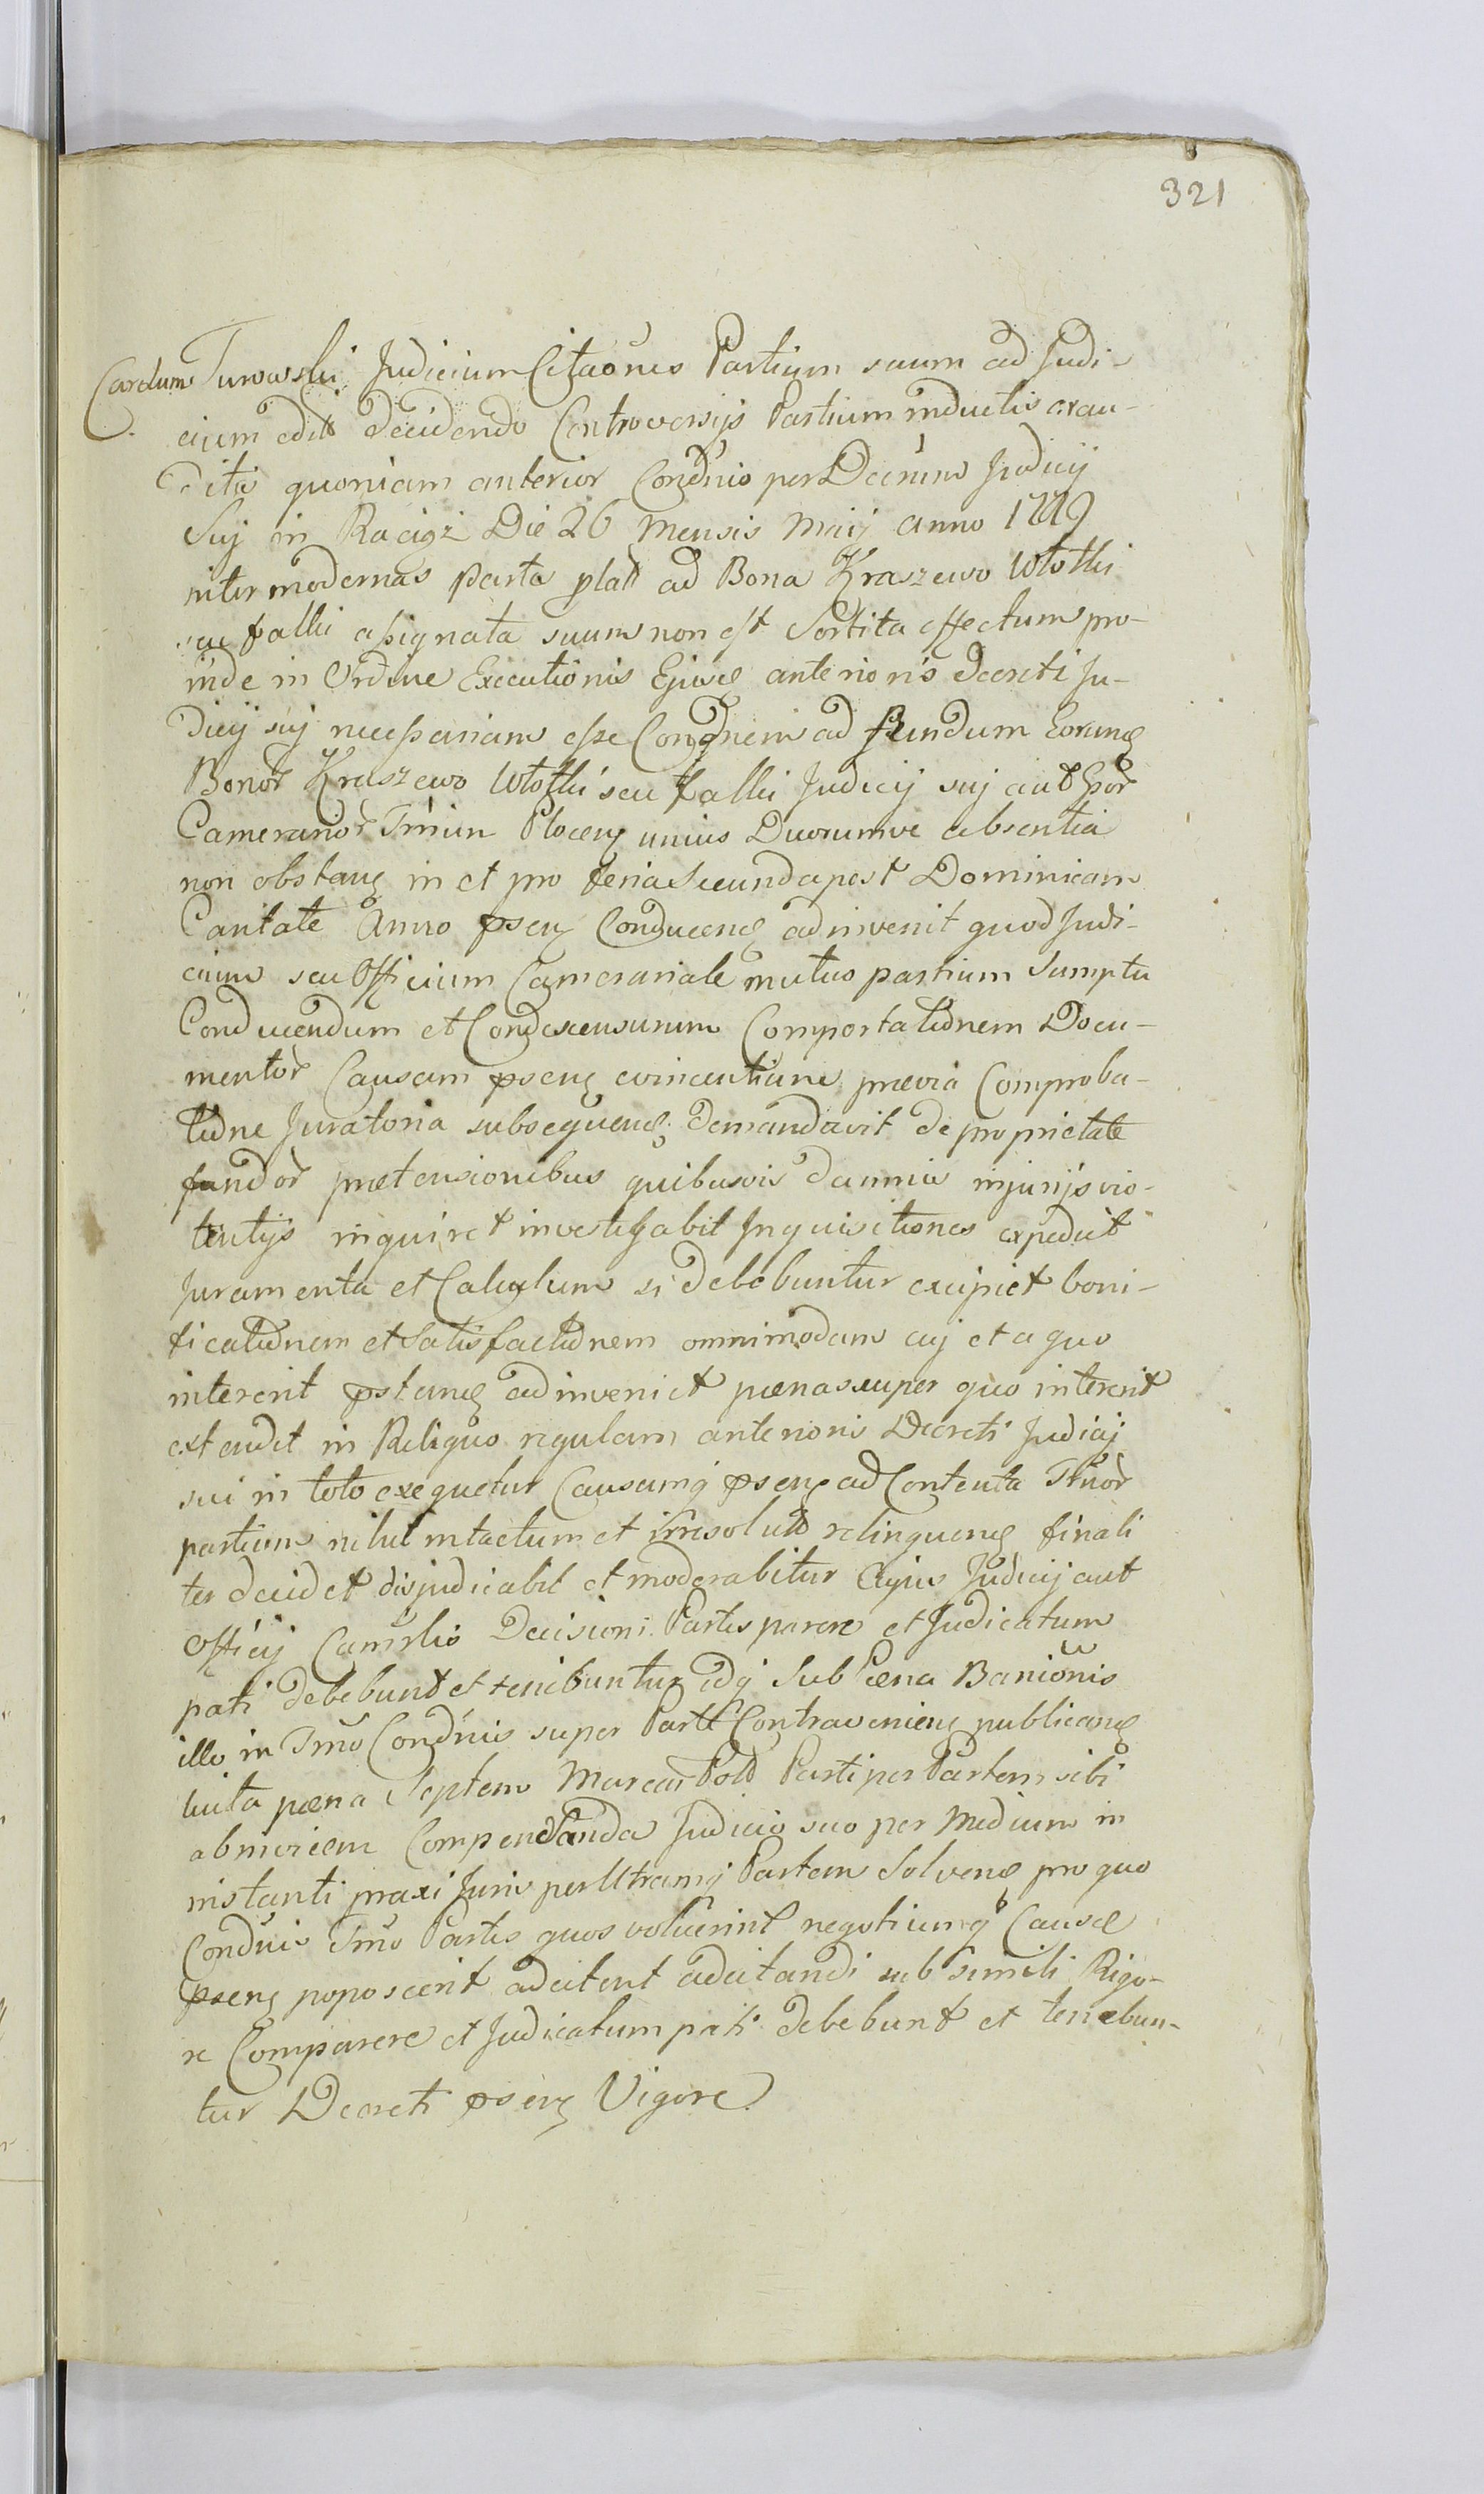 321
Carolum Turowski Judicium Citaōnes Partium suum ad Judi-
cium edit Decidendo Controversijs Partium inductis exau-
ditis quoniam anterior Condn̄io per Decretum Judicij
Suj in Raciąż Die 26 Mensis Maij Anno 1779
inter modernas Partes ad Bona Kraszewo Wtostki
seu falki assignata suum non est Sortita effectum pro-
inde in Ordine Executionis Ejusd anterioris Decreti Ju-
dicij suj necessariam esse Condn̄em ad fundum Eorund
Bonor Kraszewo seu falki Judicij suj aut
Cameranor Plocen unius Duorumve absentia
non obstan in et pro feria Secunda post Dominicam
Cantate Anno psen Conducend adinvenit quod Judi-
cium seu Officium Camerariale mutuo partium Sumptu
Conducendum et Condescensurum Comportationem Docu-
mentor Causam psen evincentium prævia Comproba-
tione Juratoria subsequend demandavit de proprietate
fundor prætensionibus quibusvis damnis injurijs vio-
lentijs inquiret investigabit Inquisitiones expediet
Juramenta et Calculum si debebuntur excipiet boni-
ficationem et Satisfactionem omnimodam cuj et a quo
intererit pstand adinveniet pænas super quo intererit
extendet in Reliquo regulam anterioris Decreti Judicij
sui in toto exequetur Causamq psen ad Contenta Tmor
partium nihil intactum et irresolutt relinquend finali
ter decidet disjudicabit et moderabitur Cujus Judicij aut
Officij Camrlis Decisioni Partes parere et Judicatum
pati debebunt et tenebuntur idq Sub Pæna Baniōnis
illo in Tm̄o Condn̄is super Parte Contravenien publicand
luita pæna Septem Marcar Pold Parti per Partem sibi
abinvicem Compensanda Judicio suo per Medium in
instanti praxi Juris per Utramq Partem Solvend pro quo
Condn̄is Tm̄o Partes quos voluerint negotiumq Causæ
psen poposcerit adcitent adcitandi sub simili Rigo-
re Comparere et Judicatum pati debebunt et tenebun-
tur Decreti psen Vigore